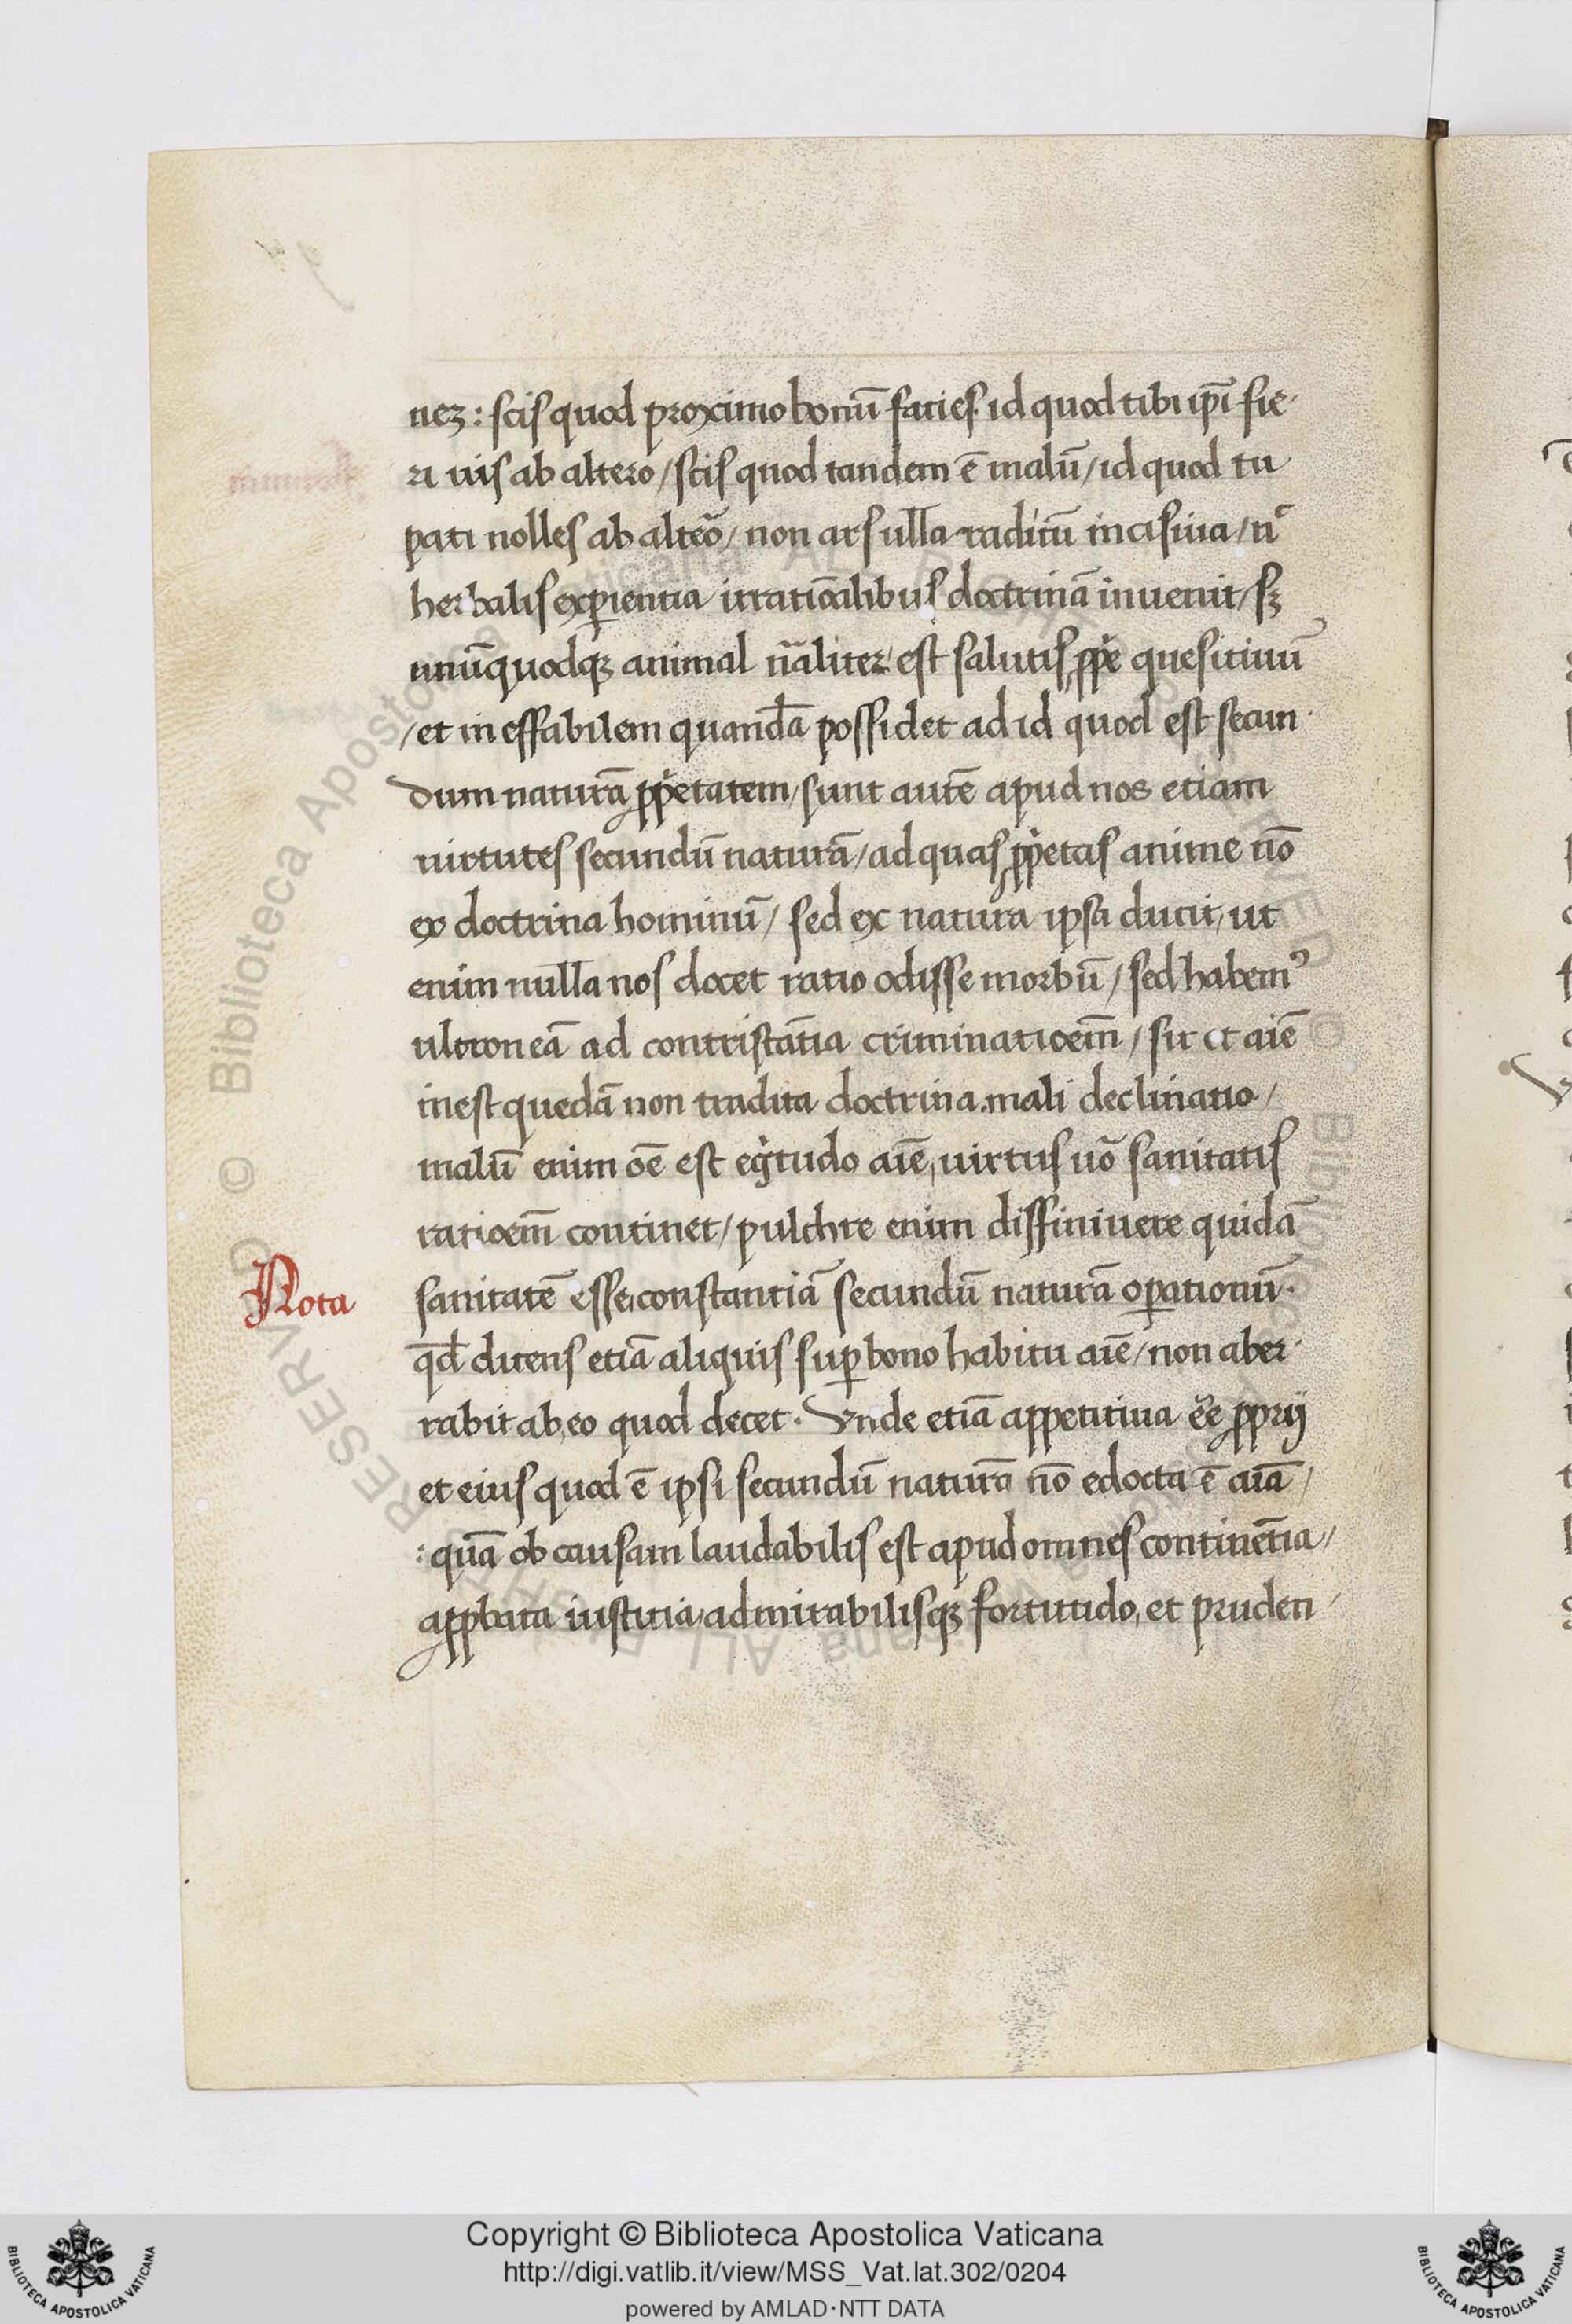 nez: scis quod proximo bonū facies. id quod tibi ip̄i fie
ri uis ab altero/scis quod tandem ē malū/id quod tu
pati nolles ab alteo᷑/non ars ulla raditū incisiua/n͛
herbalis expientia irrationalibus doctrinā inuenit/sꝫ
unūquodqꝫ animal nāliter est salutis ꝓpe quesitiuū
/et in effabilem quandā possidet ad id quod est secun
dum naturā ꝓpietatem/sunt autē apud nos etiam
uirtutes secundū naturā/ad quas ꝓpietas anime nō
ex doctrina hominū/sed ex natura ipsa ducit, ut
enim nulla nos docet ratio odisse morbū/sed habemꝰ
ultroneā ad contristātia criminatioem̄/sic et aiē
inest quedā non tradita doctrina. mali declinatio/
malū enim oē est egͥtudo aiē, uirtus uo᷑ sanitatis
ratioem̄ continet/pulchre enim diffiniuere quidā
Nota
sanitatē esse, constantiā secundū naturā oꝑationū.
qd̄ dicens etiā aliquis suꝑ bono habitu aiē/non aber
rabit ab, eo quod decet. Vnde etiā appetitiua eē ꝓprij
et eius quod ē ipsi secundū naturā nō edocta ē aiā/
:quā ob causam laudabilis est apud omnes continētia/
apꝓbata iusticia, admirabilisqꝫ fortitudo, et pruden
Copyright © Biblioteca Apostolica Vaticana
http://digi.vatlib.it/view/MSS_Vat.lat.302/0204
powered by AMLAD·NTT DATA